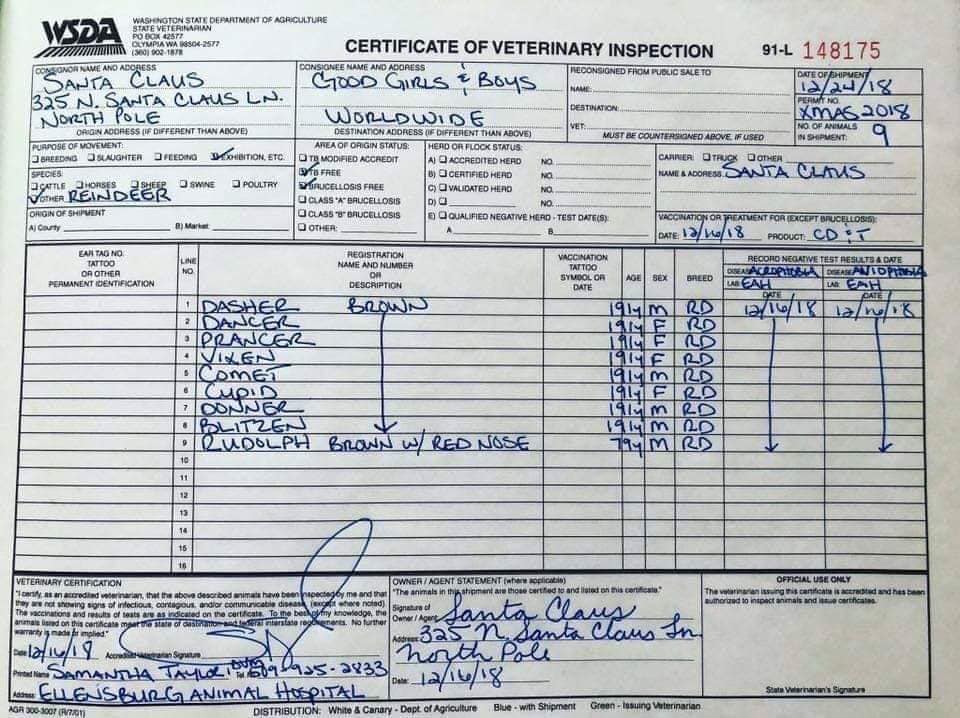 WSDA
WASHINGTON STATE DEPARTMENT OF AGRICULTURE
STATE VETERINARIAN
PO BOX 42577
OLYMPIA WA 98504-2577
(360) 902-1878
CERTIFICATE OF VETERINARY INSPECTION
91-L 148175
CONSIGNOR NAME AND ADDRESS
SANTA CLAUS
325 N. SANTA CLAUS LN.
NORTH POLE
ORIGIN ADDRESS (IF DIFFERENT THAN ABOVE)
CONSIGNEE NAME AND ADDRESS
GOOD GIRLS & BOYS
WORLDWIDE
DESTINATION ADDRESS (IF DIFFERENT THAN ABOVE)
RECONSIGNED FROM PUBLIC SALE TO
NAME:
DESTINATION:
VET:
MUST BE COUNTERSIGNED ABOVE, IF USED
DATE OF SHIPMENT
12/24/18
PERMIT NO.
XMAS 2018
NO. OF ANIMALS
IN SHIPMENT: 9
PURPOSE OF MOVEMENT:
BREEDING SLAUGHTER FEEDING EXHIBITION, ETC.
SPECIES:
CATTLE HORSES SHEEP SWINE POULTRY
OTHER REINDEER
ORIGIN OF SHIPMENT
A) County B) Market:
AREA OF ORIGIN STATUS:
TB MODIFIED ACCREDIT
TB FREE
BRUCELLOSIS FREE
CLASS "A" BRUCELLOSIS
CLASS "B" BRUCELLOSIS
OTHER:
HERD OR FLOCK STATUS:
A) ACCREDITED HERD NO.
B) CERTIFIED HERD NO.
C) VALIDATED HERD NO.
D) NO.
E) QUALIFIED NEGATIVE HERD - TEST DATE(S):
A B.
CARRIER: TRUCK OTHER
NAME & ADDRESS: SANTA CLAUS
VACCINATION OR TREATMENT FOR (EXCEPT BRUCELLOSIS):
DATE: 12/16/18 PRODUCT: CD & T
EAR TAG NO.
TATTOO
OR OTHER
PERMANENT IDENTIFICATION
LINE
NO.
REGISTRATION
NAME AND NUMBER
OR
DESCRIPTION
VACCINATION
TATTOO
SYMBOL OR
DATE
AGE
SEX
BREED
RECORD NEGATIVE TEST RESULTS & DATE
DISEASE ACROPHOBIA DISEASE AVIOPHOBIA
LAB: EAH LAB: EAH
DATE DATE
1 DASHER BROWN 191y M RD 12/16/18 12/16/18
2 DANCER 191y F RD
3 PRANCER 191y F RD
4 VIXEN 191y F RD
5 COMET 191y M RD
6 CUPID 191y F RD
7 DONNER 191y M RD
8 BLITZEN 191y M RD
9 RUDOLPH BROWN W/ RED NOSE 79y M RD
10
11
12
13
14
15
16
VETERINARY CERTIFICATION
"I certify, as an accredited veterinarian, that the above described animals have been inspected by me and that
they are not showing signs of infectious, contagious, and/or communicable disease (except where noted).
The vaccinations and results of tests are as indicated on the certificate. To the best of my knowledge, the
animals listed on this certificate meet the state of destination and federal interstate requirements. No further
warranty is made or implied."
Date 12/16/18 Accredited Veterinarian Signature
Printed Name SAMANTHA TAYLOR, DVM Tel. 509-925-2833
Address: ELLENSBURG ANIMAL HOSPITAL
OWNER / AGENT STATEMENT (where applicable)
"The animals in this shipment are those certified to and listed on this certificate."
Signature of
Owner / Agent: Santa Claus
Address: 325 N. Santa Claus Ln
North Pole
Date: 12/16/18
OFFICIAL USE ONLY
The veterinarian issuing this certificate is accredited and has been
authorized to inspect animals and issue certificates.
State Veterinarian's Signature
AGR 300-3007 (R/7/01)
DISTRIBUTION: White & Canary - Dept. of Agriculture Blue - with Shipment Green - Issuing Veterinarian